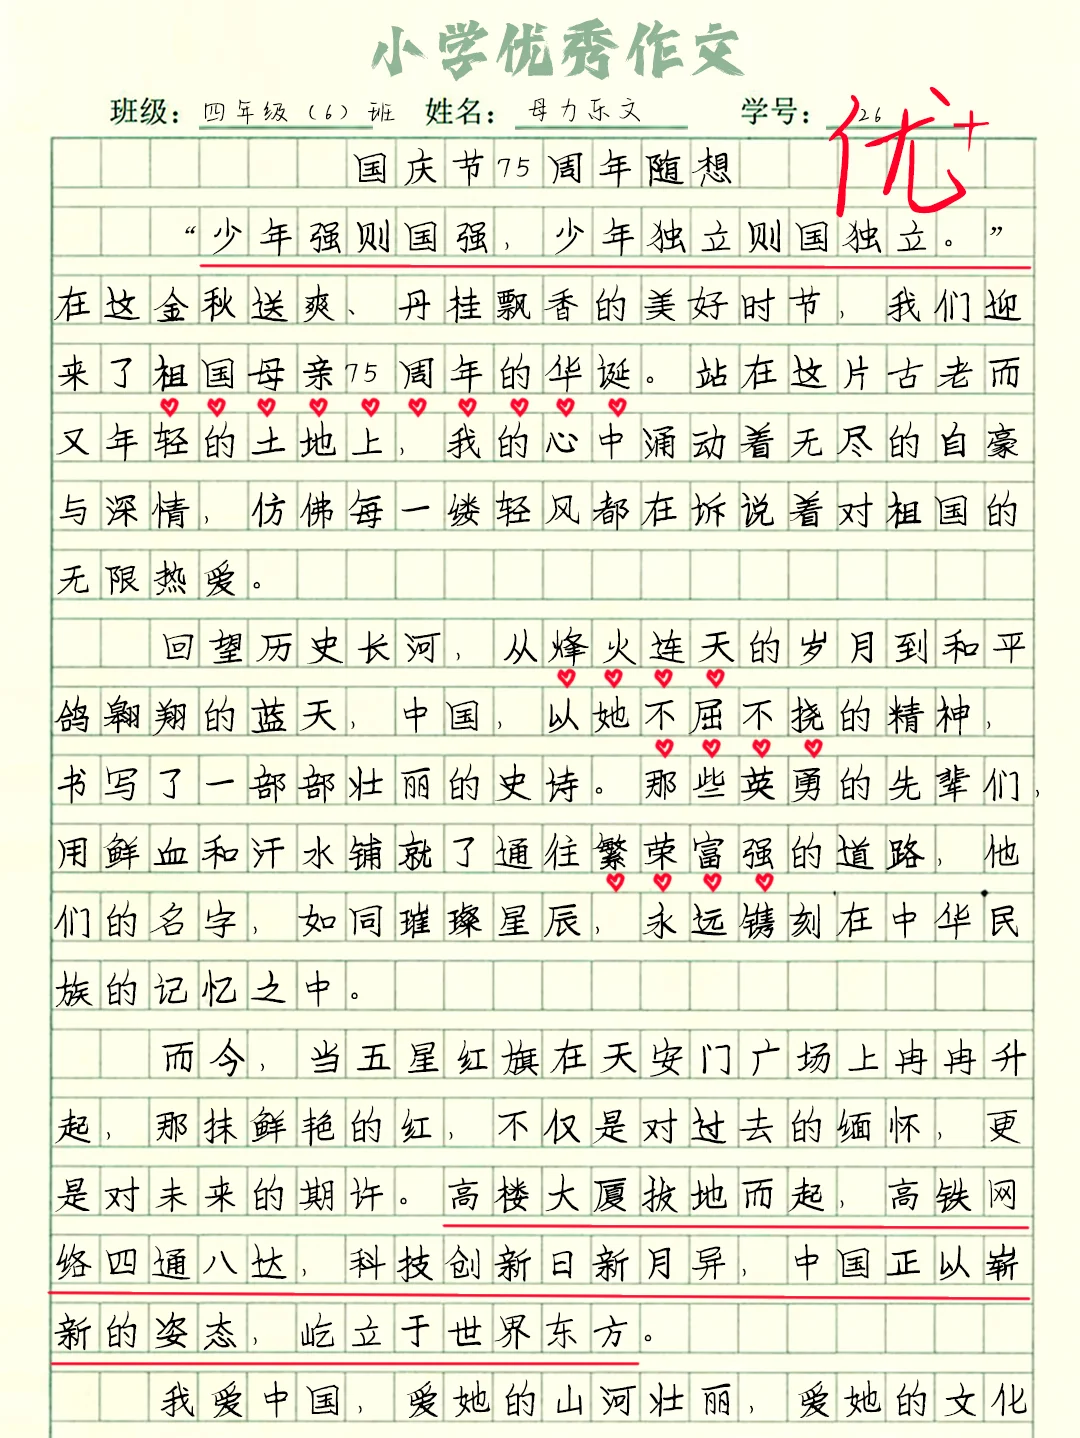 小学优秀作文
班级：四年级（6）班 姓名：母力乐文 学号：26
优+
国庆节75周年随想
“少年强则国强，少年独立则国独立。”
在这金秋送爽、丹桂飘香的美好时节，我们迎
来了祖国母亲75周年的华诞。站在这片古老而
又年轻的土地上，我的心中涌动着无尽的自豪
与深情，仿佛每一缕轻风都在诉说着对祖国的
无限热爱。
回望历史长河，从烽火连天的岁月到和平
鸽翱翔的蓝天，中国，以她不屈不挠的精神，
书写了一部部壮丽的史诗。那些英勇的先辈们，
用鲜血和汗水铺就了通往繁荣富强的道路，他
们的名字，如同璀璨星辰，永远镌刻在中华民
族的记忆之中。
而今，当五星红旗在天安门广场上冉冉升
起，那抹鲜艳的红，不仅是对过去的缅怀，更
是对未来的期许。高楼大厦拔地而起，高铁网
络四通八达，科技创新日新月异，中国正以崭
新的姿态，屹立于世界东方。
我爱中国，爱她的山河壮丽，爱她的文化